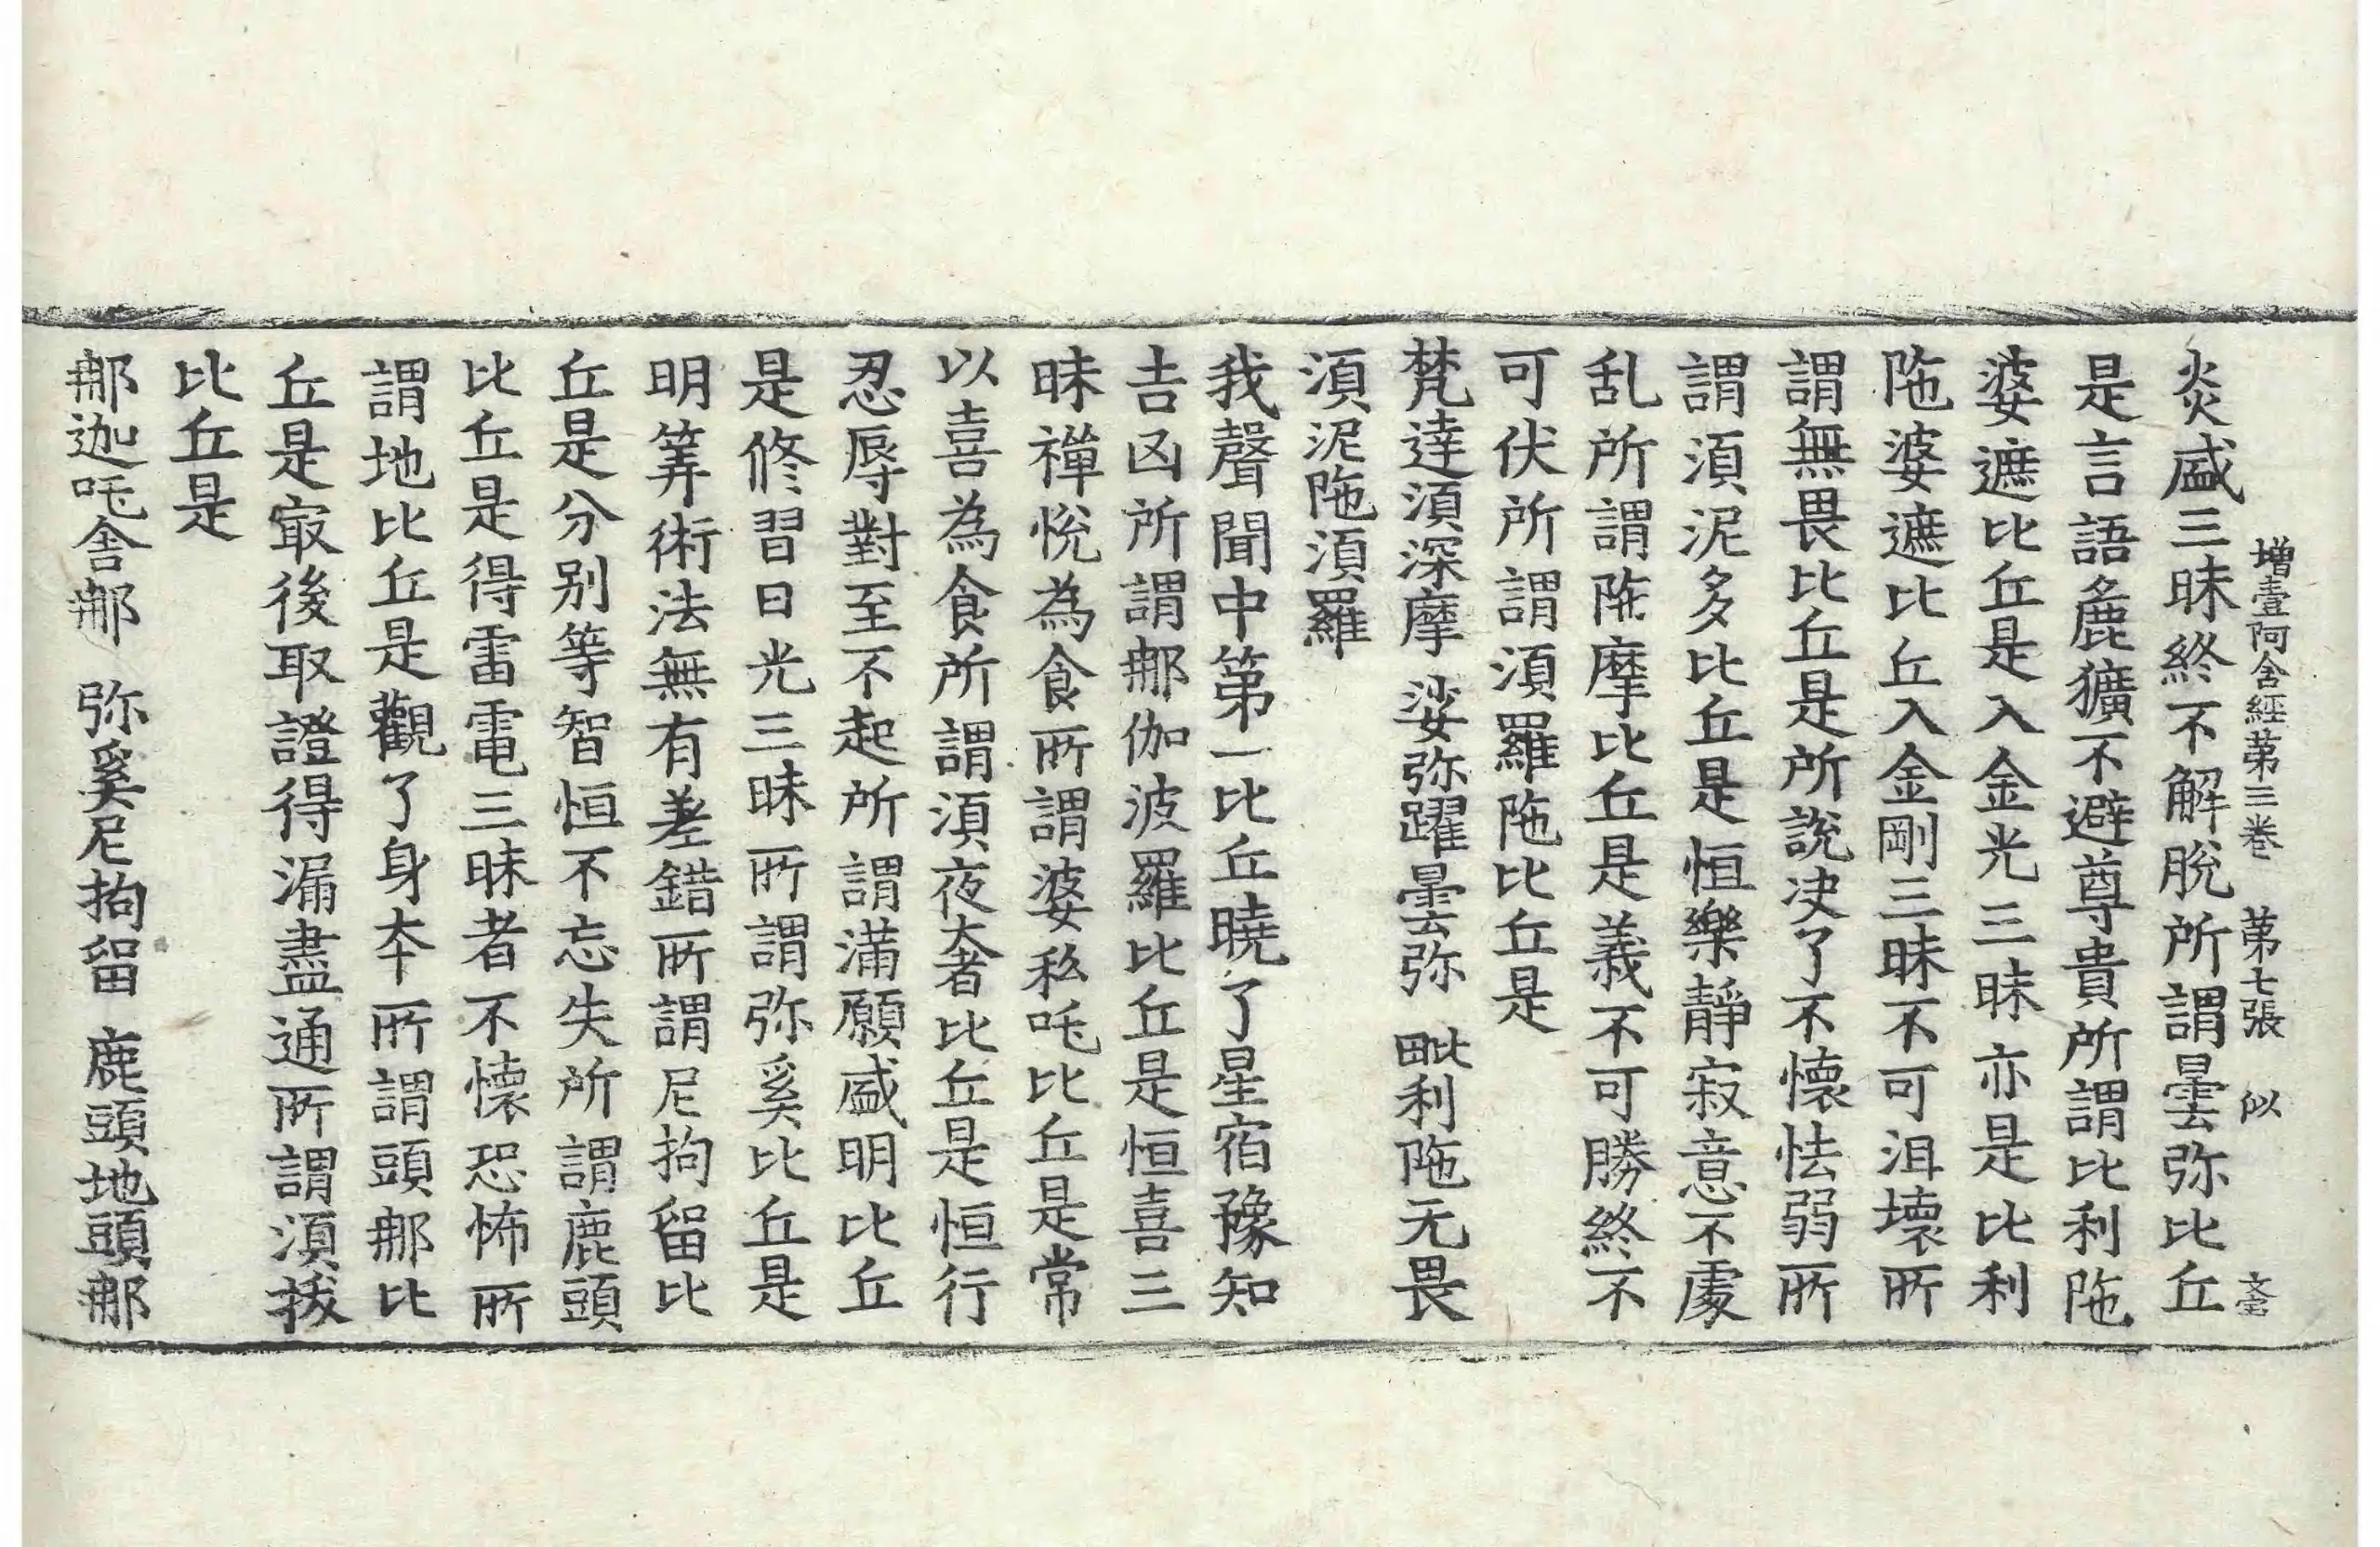 增壹阿含經第三卷　第七張　似　文宣
炎盛三昧終不解脫所謂曇弥比丘
是言語麁獷不避尊貴所謂比利陁
婆遮比丘是入金光三昧亦是比利
陁婆遮比丘入金剛三昧不可沮壞所
謂無畏比丘是所說决了不懷怯弱所
謂湏泥多比丘是恒樂靜寂意不處
乱所謂陁摩比丘是義不可勝終不
可伏所謂湏羅陁比丘是
梵達湏深摩　娑弥躍曇弥　毗利陁无畏
湏泥陁湏羅
我聲聞中第一比丘曉了星宿豫知
吉凶所謂那伽波羅比丘是恒喜三
昧禪悅為食所謂婆私吒比丘是常
以喜為食所謂湏夜奢比丘是恒行
忍辱對至不起所謂滿願盛明比丘
是修習日光三昧所謂弥奚比丘是
明筭術法無有差錯所謂尼拘留比
丘是分别等智恒不忘失所謂鹿頭
比丘是得雷電三昧者不懷恐怖所
謂地比丘是觀了身夲所謂頭那比
丘是冣後取證得漏盡通所謂湏拔
比丘是
那迦吒舍那　弥奚尼拘留　鹿頭地頭那